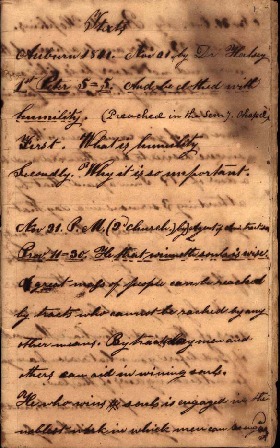 Texts
Auburn 1841. Nov 21, by Dr Hickey
1st Peter 5=5. And be clothed with
humility. (Preached in the Sem'y. Chapel)
First. What is humility
Secondly. Why it is so important.
Nov 21. P. M. (2d Church) by Agent of Am. tract
Prov. 11=30. He that winneth souls is wise
A great mass of people cannot be reached
by tracts who cannot be reached by any
other means. By tracts laymen and
others can aid in wining souls.
He who wins souls is engaged in the
noblest work in which men can engage